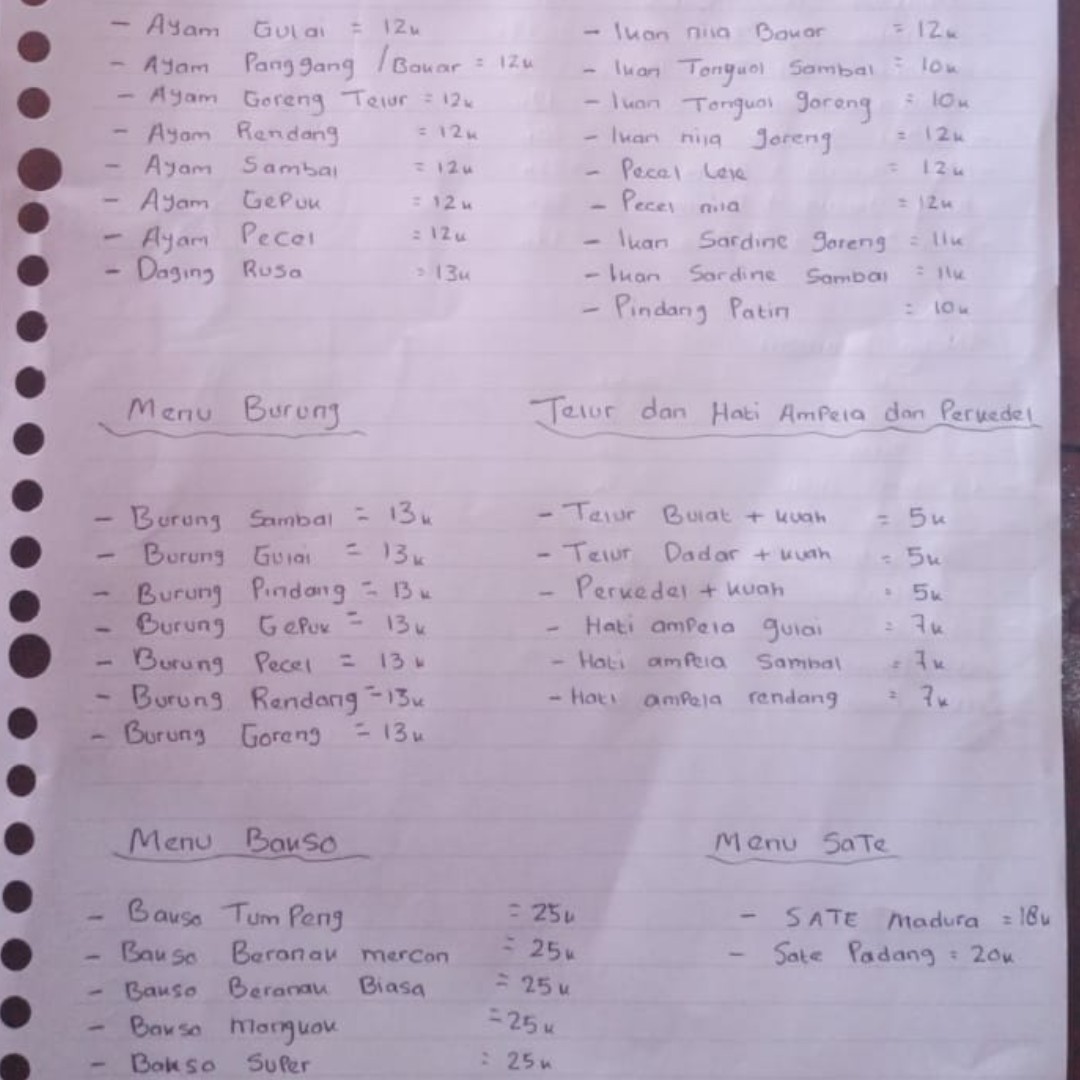 - Ayam Gulai = 12k
- Ayam Panggang / Bakar = 12k
- Ayam Goreng Telur = 12k
- Ayam Rendang = 12k
- Ayam Sambal = 12k
- Ayam Gepuk = 12k
- Ayam Pecel = 12k
- Daging Rusa = 13k
- Ikan nila Bakar = 12k
- Ikan Tongkol Sambal = 10k
- Ikan Tongkol goreng = 10k
- Ikan nila goreng = 12k
- Pecel Lele = 12k
- Pecel nila = 12k
- Ikan Sardine goreng = 11k
- Ikan Sardine Sambal = 11k
- Pindang Patin = 10k
Menu Burung
- Burung Sambal = 13k
- Burung Gulai = 13k
- Burung Pindang = 13k
- Burung Gepuk = 13k
- Burung Pecel = 13k
- Burung Rendang = 13k
- Burung Goreng = 13k
Telur dan Hati Ampela dan Perkedel
- Telur Bulat + kuah = 5k
- Telur Dadar + kuah = 5k
- Perkedel + kuah = 5k
- Hati ampela gulai = 7k
- Hati ampela Sambal = 7k
- Hati ampela rendang = 7k
Menu Bakso
- Bakso Tumpeng = 25k
- Bakso Beranak mercon = 25k
- Bakso Beranak Biasa = 25k
- Bakso Mangkok = 25k
- Bakso Super = 25k
Menu Sate
- SATE Madura = 18k
- Sate Padang = 20k